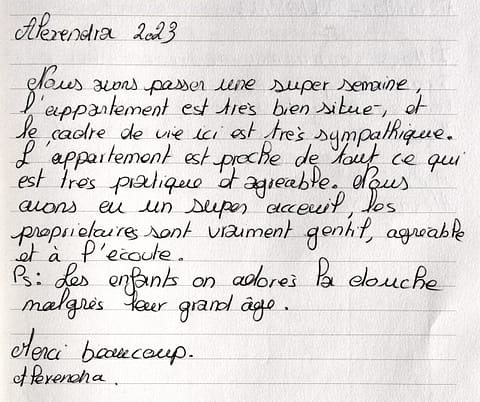 Alexendra 2023
Nous avons passer une super semaine,
l'appartement est très bien situé, et
le cadre de vie ici est très sympathique.
L'appartement est proche de tout ce qui
est très pratique et agréable. Nous
avons eu un super acceuil, les
propriétaires sont vraiment gentil, agréable
et à l'écoute.
Ps: Les enfants on adorés la douche
malgrès leur grand âge.
Merci beaucoup.